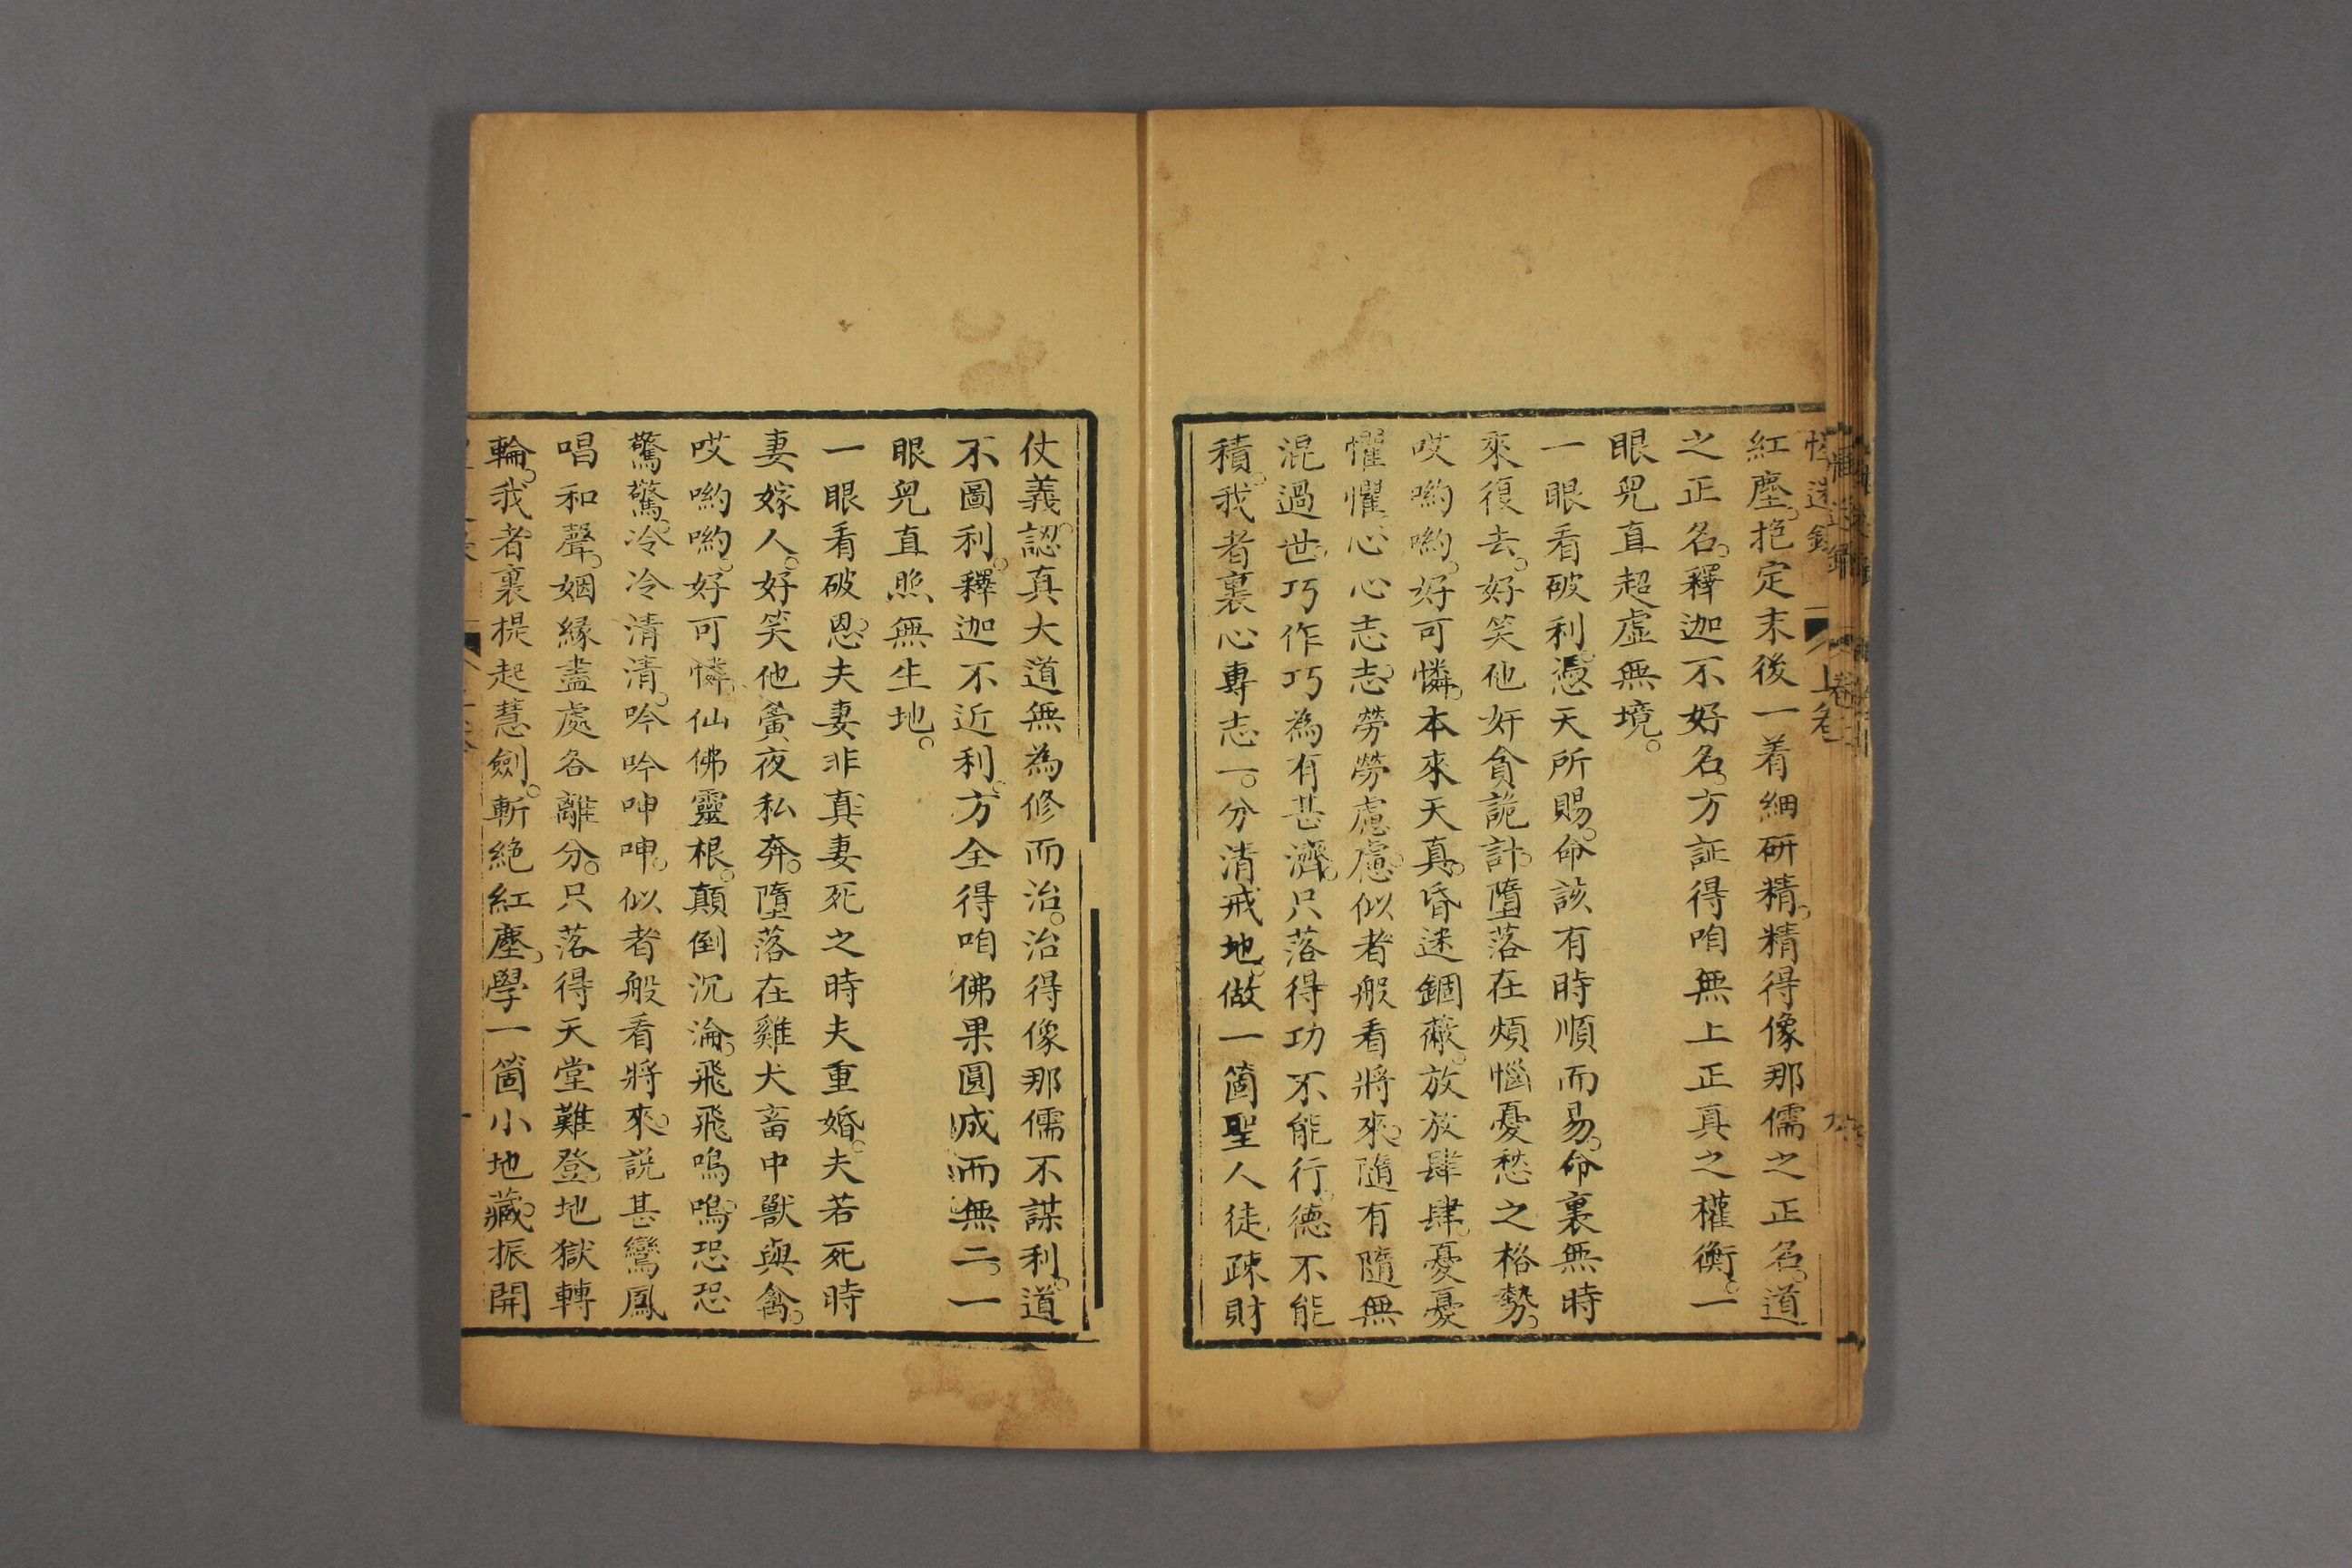 紅塵。抱定末後一着細研精。精得像那儒之正名。道
之正名。釋迦不好名。方証得咱無上正真之權衡。一
眼兒直超虛無境。
一眼看破利。憑天所賜。命該有時順而易。命裏無時
來復去。好笑他奸貪詭計。墮落在煩惱憂愁之格勢。
哎喲喲。好可憐。本來天真。昏迷錮蔽。放放肆肆。憂憂
懼懼。心心志志。勞勞慮慮。似者般看將來。隨有隨無
混過世。巧作巧為有甚濟。只落得功不能行。德不能
積。我者裏心專志一。分清戒地。做一箇聖人徒。疎財
仗義。認真大道無為修而治。治得像那儒不謀利。道
不圖利。釋迦不近利。方全得咱佛果圓成而無二。一
眼兒直照無生地。
一眼看破恩。夫妻非真。妻死之時夫重婚。夫若死時
妻嫁人。好笑他夤夜私奔。墮落在雞犬畜中獸與禽。
哎喲喲。好可憐。仙佛靈根。顛倒沉淪。飛飛鳴鳴。恐恐
驚驚。冷冷清清。吟吟呻呻。似者般看將來。說甚鸞鳳
唱和聲。姻緣盡處各離分。只落得天堂難登。地獄轉
輪。我者裏提起慧劍。斬絕紅塵。學一箇小地藏。振開